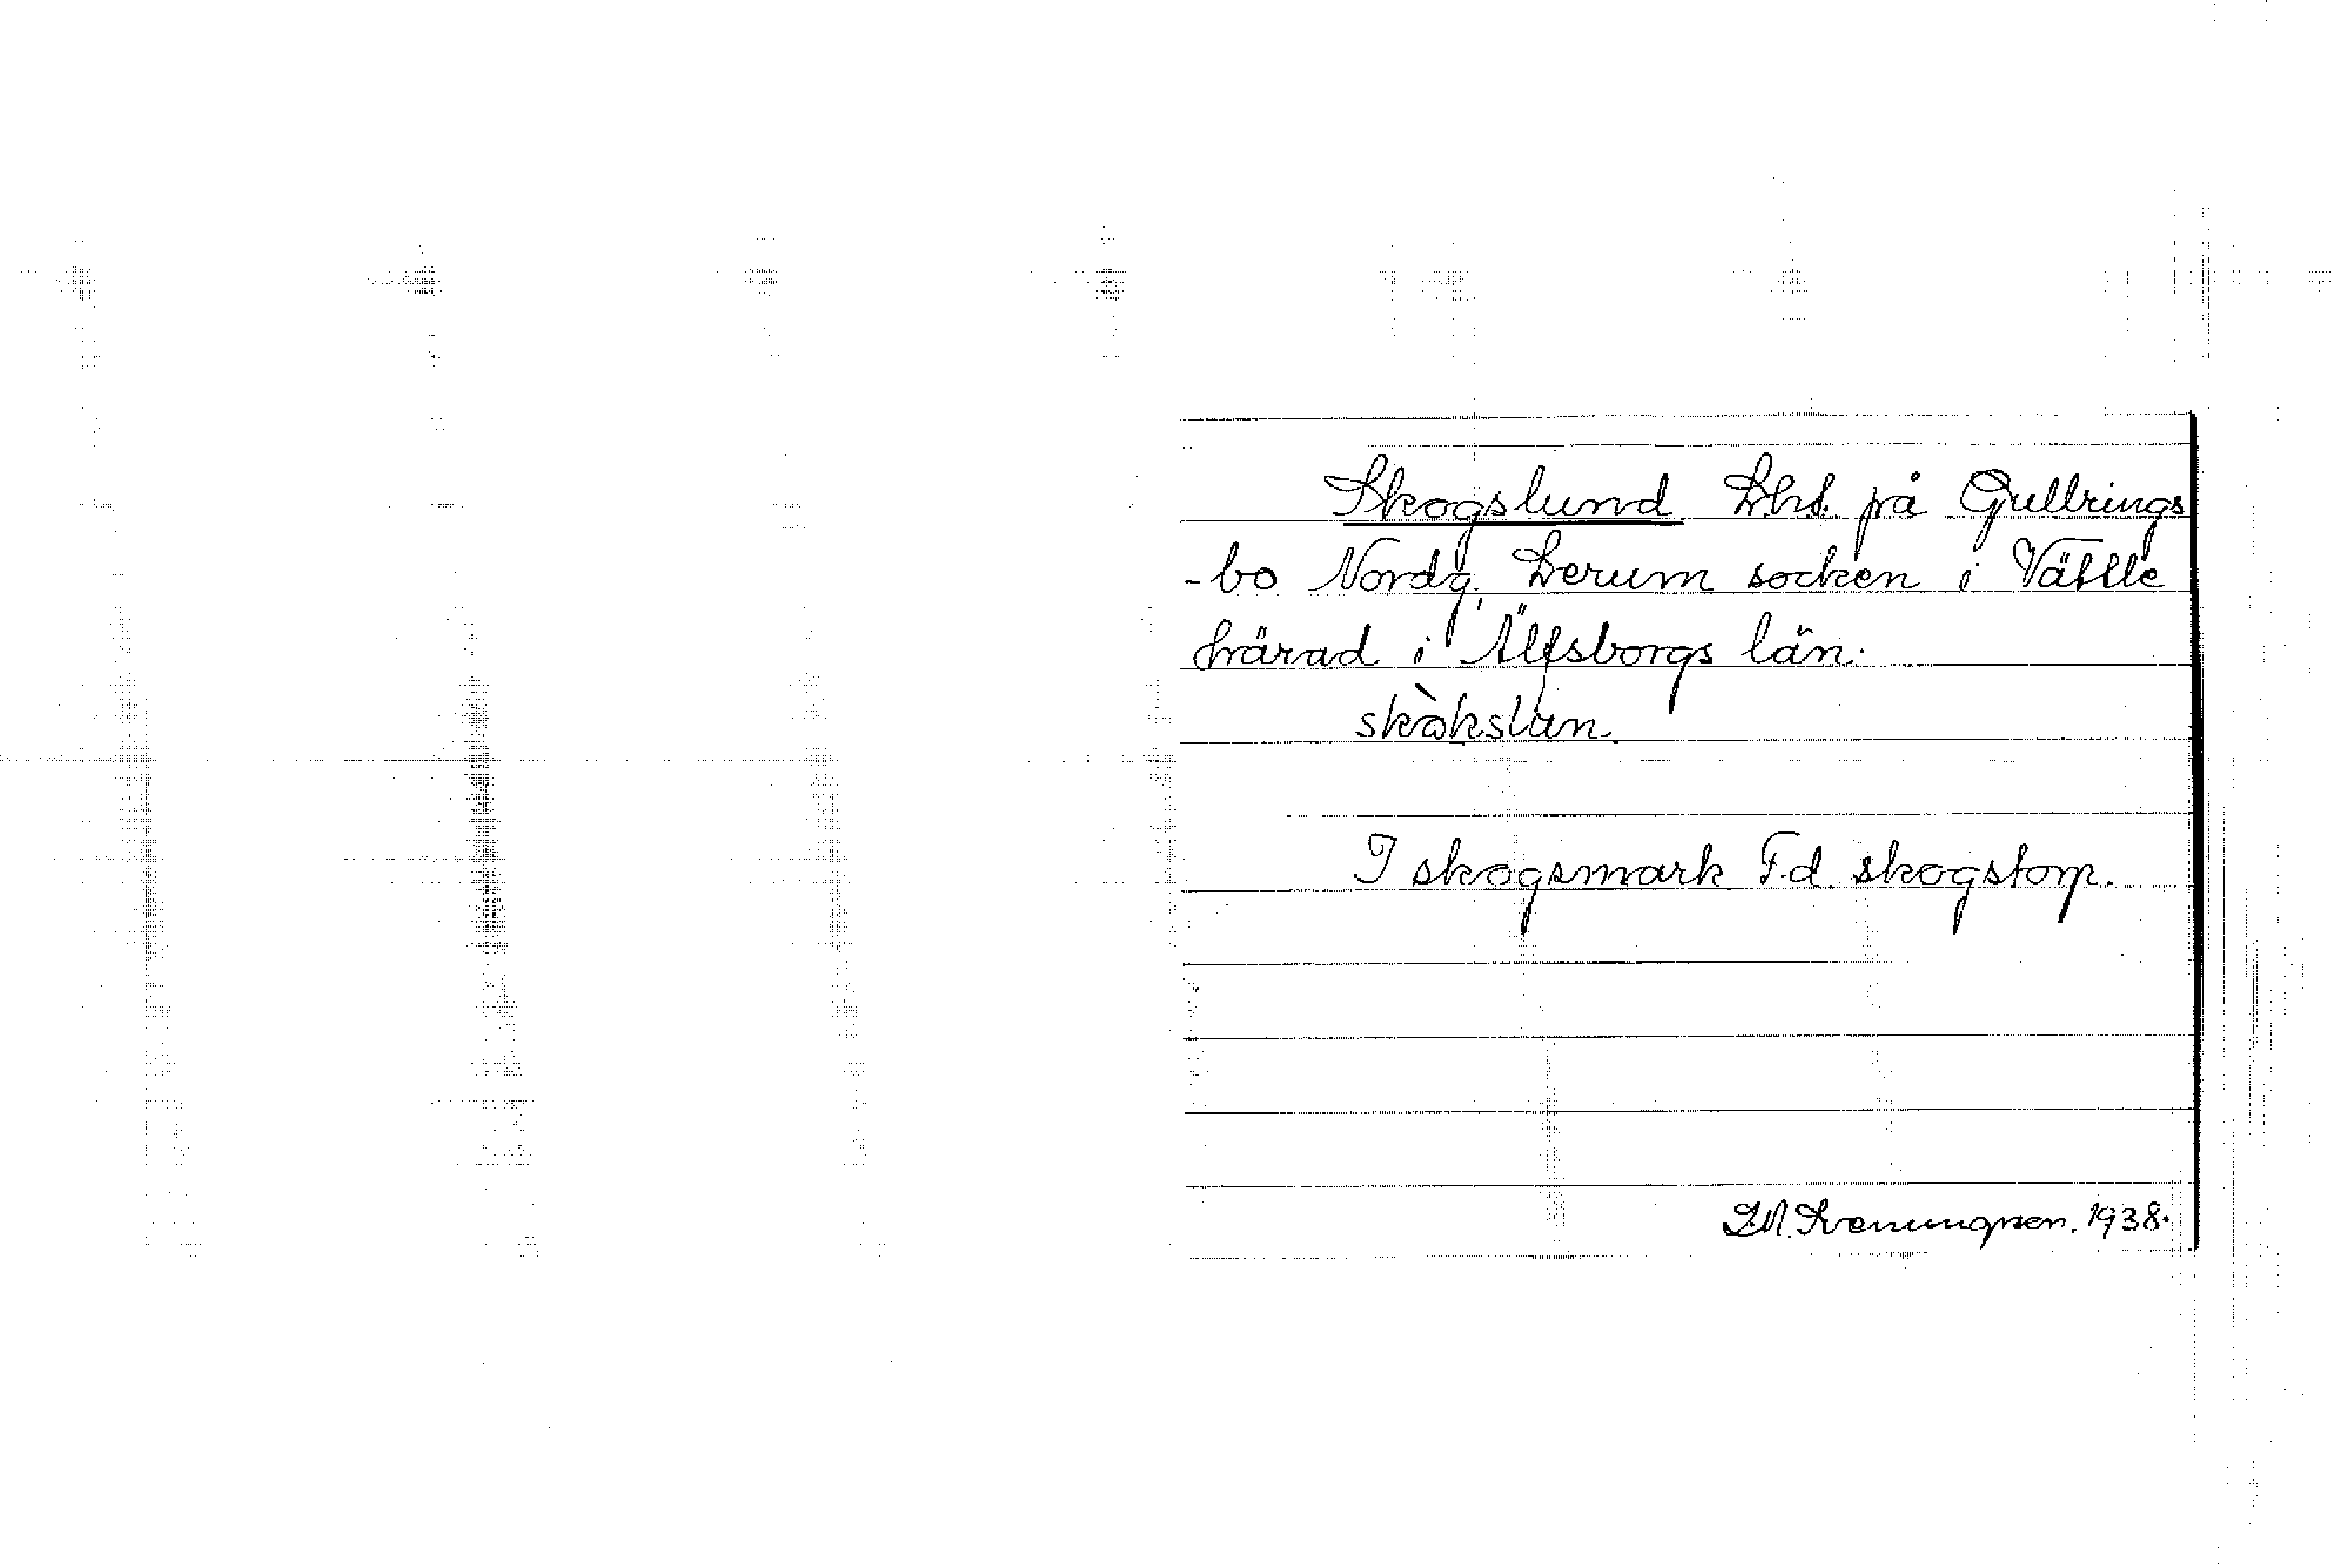 Skogslund Lht. på Gullrings
-bo Nordg. Lerum socken i Vättle
härad i Älfsborgs län.
skòkslun
I skogsmark F.d. skogstorp.
Svenungsson. 1938.